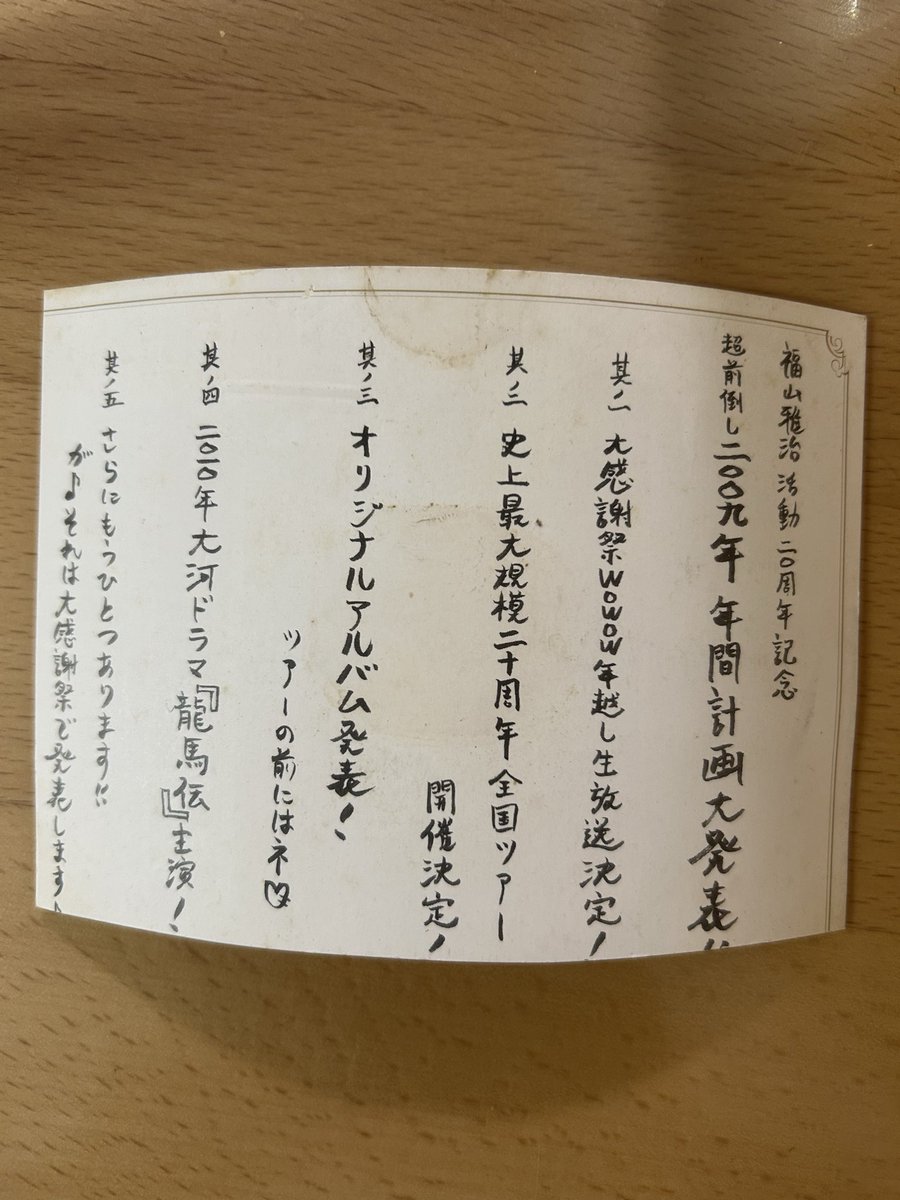 福山雅治 活動二〇周年記念
超前倒し二〇〇九年 年間計画大発表!!
其ノ一 大感謝祭WOWOW年越し生放送決定!
其ノ二 史上最大規模二十周年全国ツアー
開催決定!
其ノ三 オリジナルアルバム発表!
ツアーの前にはネ
其ノ四 二〇一〇年大河ドラマ『龍馬伝』主演!
其ノ五 さらにもうひとつあります!!
が♪それは大感謝祭で発表します